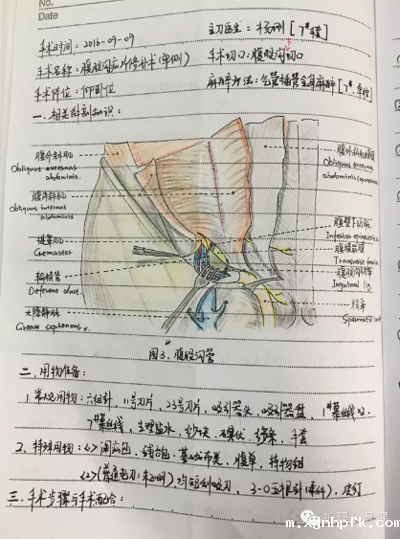 No.
Date
手术时间：2016-09-09
主刀医生：杨刚[7#手术]
手术名称：腹股沟疝片修补术(单侧)
手术切口：腹股沟切口
手术体位：仰卧位
麻醉方法：气管插管全身麻醉[7#
一、相关解剖知识：
腹外斜肌
Obliquus externus
abdominis
腹内斜肌
Obliquus internus
abdominis
提睾肌
Cremaster
输精管
Deferent duct
大隐静脉
Grease saphenous v.
腹外斜肌腱膜
Obliquus externus
abdominis
腹壁下动脉
Inferior epigastric
腹横筋膜
Transverse fascia
腹股沟韧带
Inguinal lig.
精索
Spermatic
图3. 腹股沟管
二、用物准备：
1.常规用物：六组针，11号刀片，23号刀片，吸引器头，吸引器盘，1#慕丝线
7#慕丝线，生理盐水，纱块，碘伏，手套
2.特殊用物：<1>阑疝包，辅台包，基础布类，腹单，持物钳
<2>(普通电刀：未注明)，3-0
三、手术步骤与手术配合：
m.xjnhpfk.com